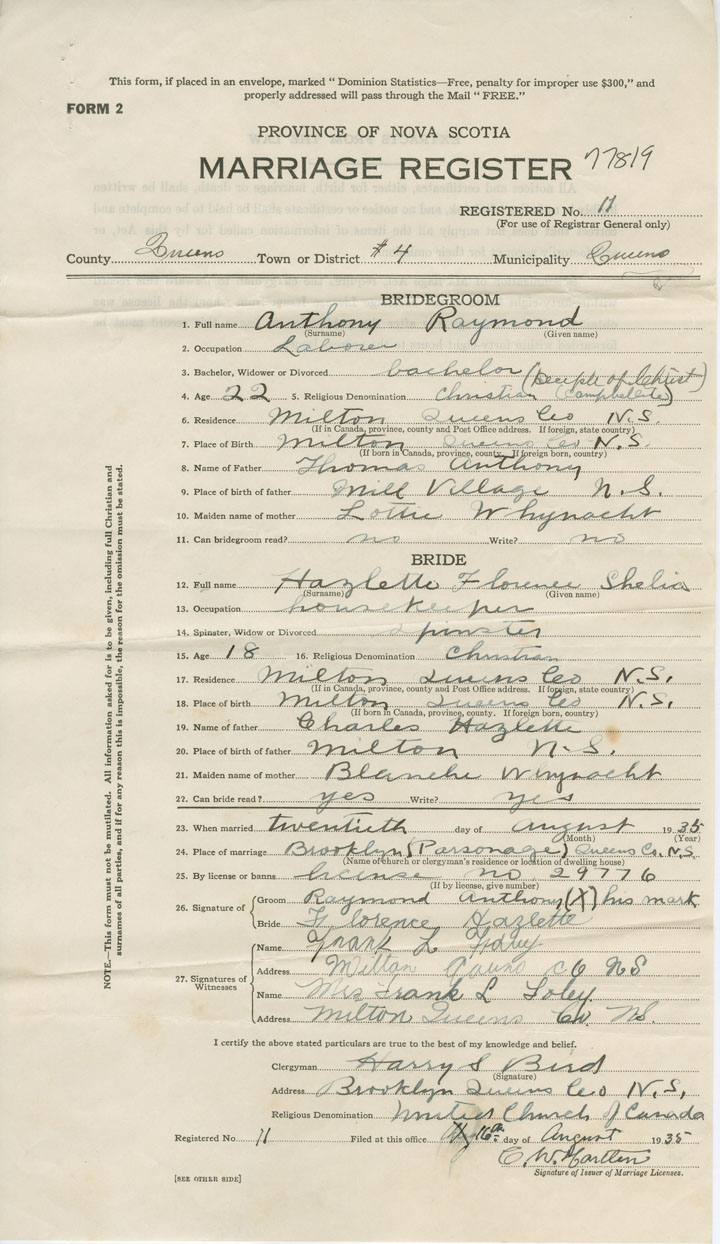 This form, if placed in an envelope, marked " Dominion Statistics—Free, penalty for improper use $300," and
properly addressed will pass through the Mail " FREE."
FORM 2
PROVINCE OF NOVA SCOTIA
MARRIAGE REGISTER 77819
REGISTERED No. 11
(For use of Registrar General only)
County Queens Town or District #4 Municipality Queens
BRIDEGROOM
1. Full name Anthony Raymond
(Surname) (Given name)
2. Occupation Laborer
3. Bachelor, Widower or Divorced bachelor (Deciple of Christ)
4. Age 22 5. Religious Denomination Christian (Campbelite)
6. Residence Milton Queens Co N.S.
(If in Canada, province, county and Post Office address. If foreign, state country)
7. Place of Birth Milton Queens Co N.S.
(If born in Canada, province, county. If foreign born, country)
8. Name of Father Thomas Anthony
9. Place of birth of father Mill Village N.S.
10. Maiden name of mother Lottie Whynacht
11. Can bridegroom read? no Write? no
BRIDE
12. Full name Hazlette Florence Shelia
(Surname) (Given name)
13. Occupation housekeeper
14. Spinster, Widow or Divorced spinster
15. Age 18 16. Religious Denomination Christian
17. Residence Milton Queens Co N.S.
(If in Canada, province, county and Post Office address. If foreign, state country)
18. Place of birth Milton Queens Co N.S.
(If born in Canada, province, county. If foreign born, country)
19. Name of father Charles Hazlette
20. Place of birth of father Milton N.S.
21. Maiden name of mother Blanche Whynacht
22. Can bride read? yes Write? yes
23. When married twentieth day of August 1935
(Month) (Year)
24. Place of marriage Brooklyn (Parsonage) Queens Co. N.S.
(Name of church or clergyman's residence or location of dwelling house)
25. By license or banns license no 29776
(If by license, give number)
26. Signature of Groom Raymond Anthony (X) his mark
Bride Florence Hazlette
27. Signatures of Witnesses
Name Frank L
Address Milton Queens Co NS
Name Mrs Frank L Foley
Address Milton Queens Co. NS.
I certify the above stated particulars are true to the best of my knowledge and belief.
Clergyman Harry S Bird
(Signature)
Address Brooklyn Queens Co N.S.
Religious Denomination United Church of Canada
Registered No. 11 Filed at this office 16th day of August 1935
C. W.
Signature of Issuer of Marriage Licenses.
[SEE OTHER SIDE]
NOTE.—This form must not be mutilated. All information asked for is to be given, including full Christian and
surnames of all parties, and if for any reason this is impossible, the reason for the omission must be stated.